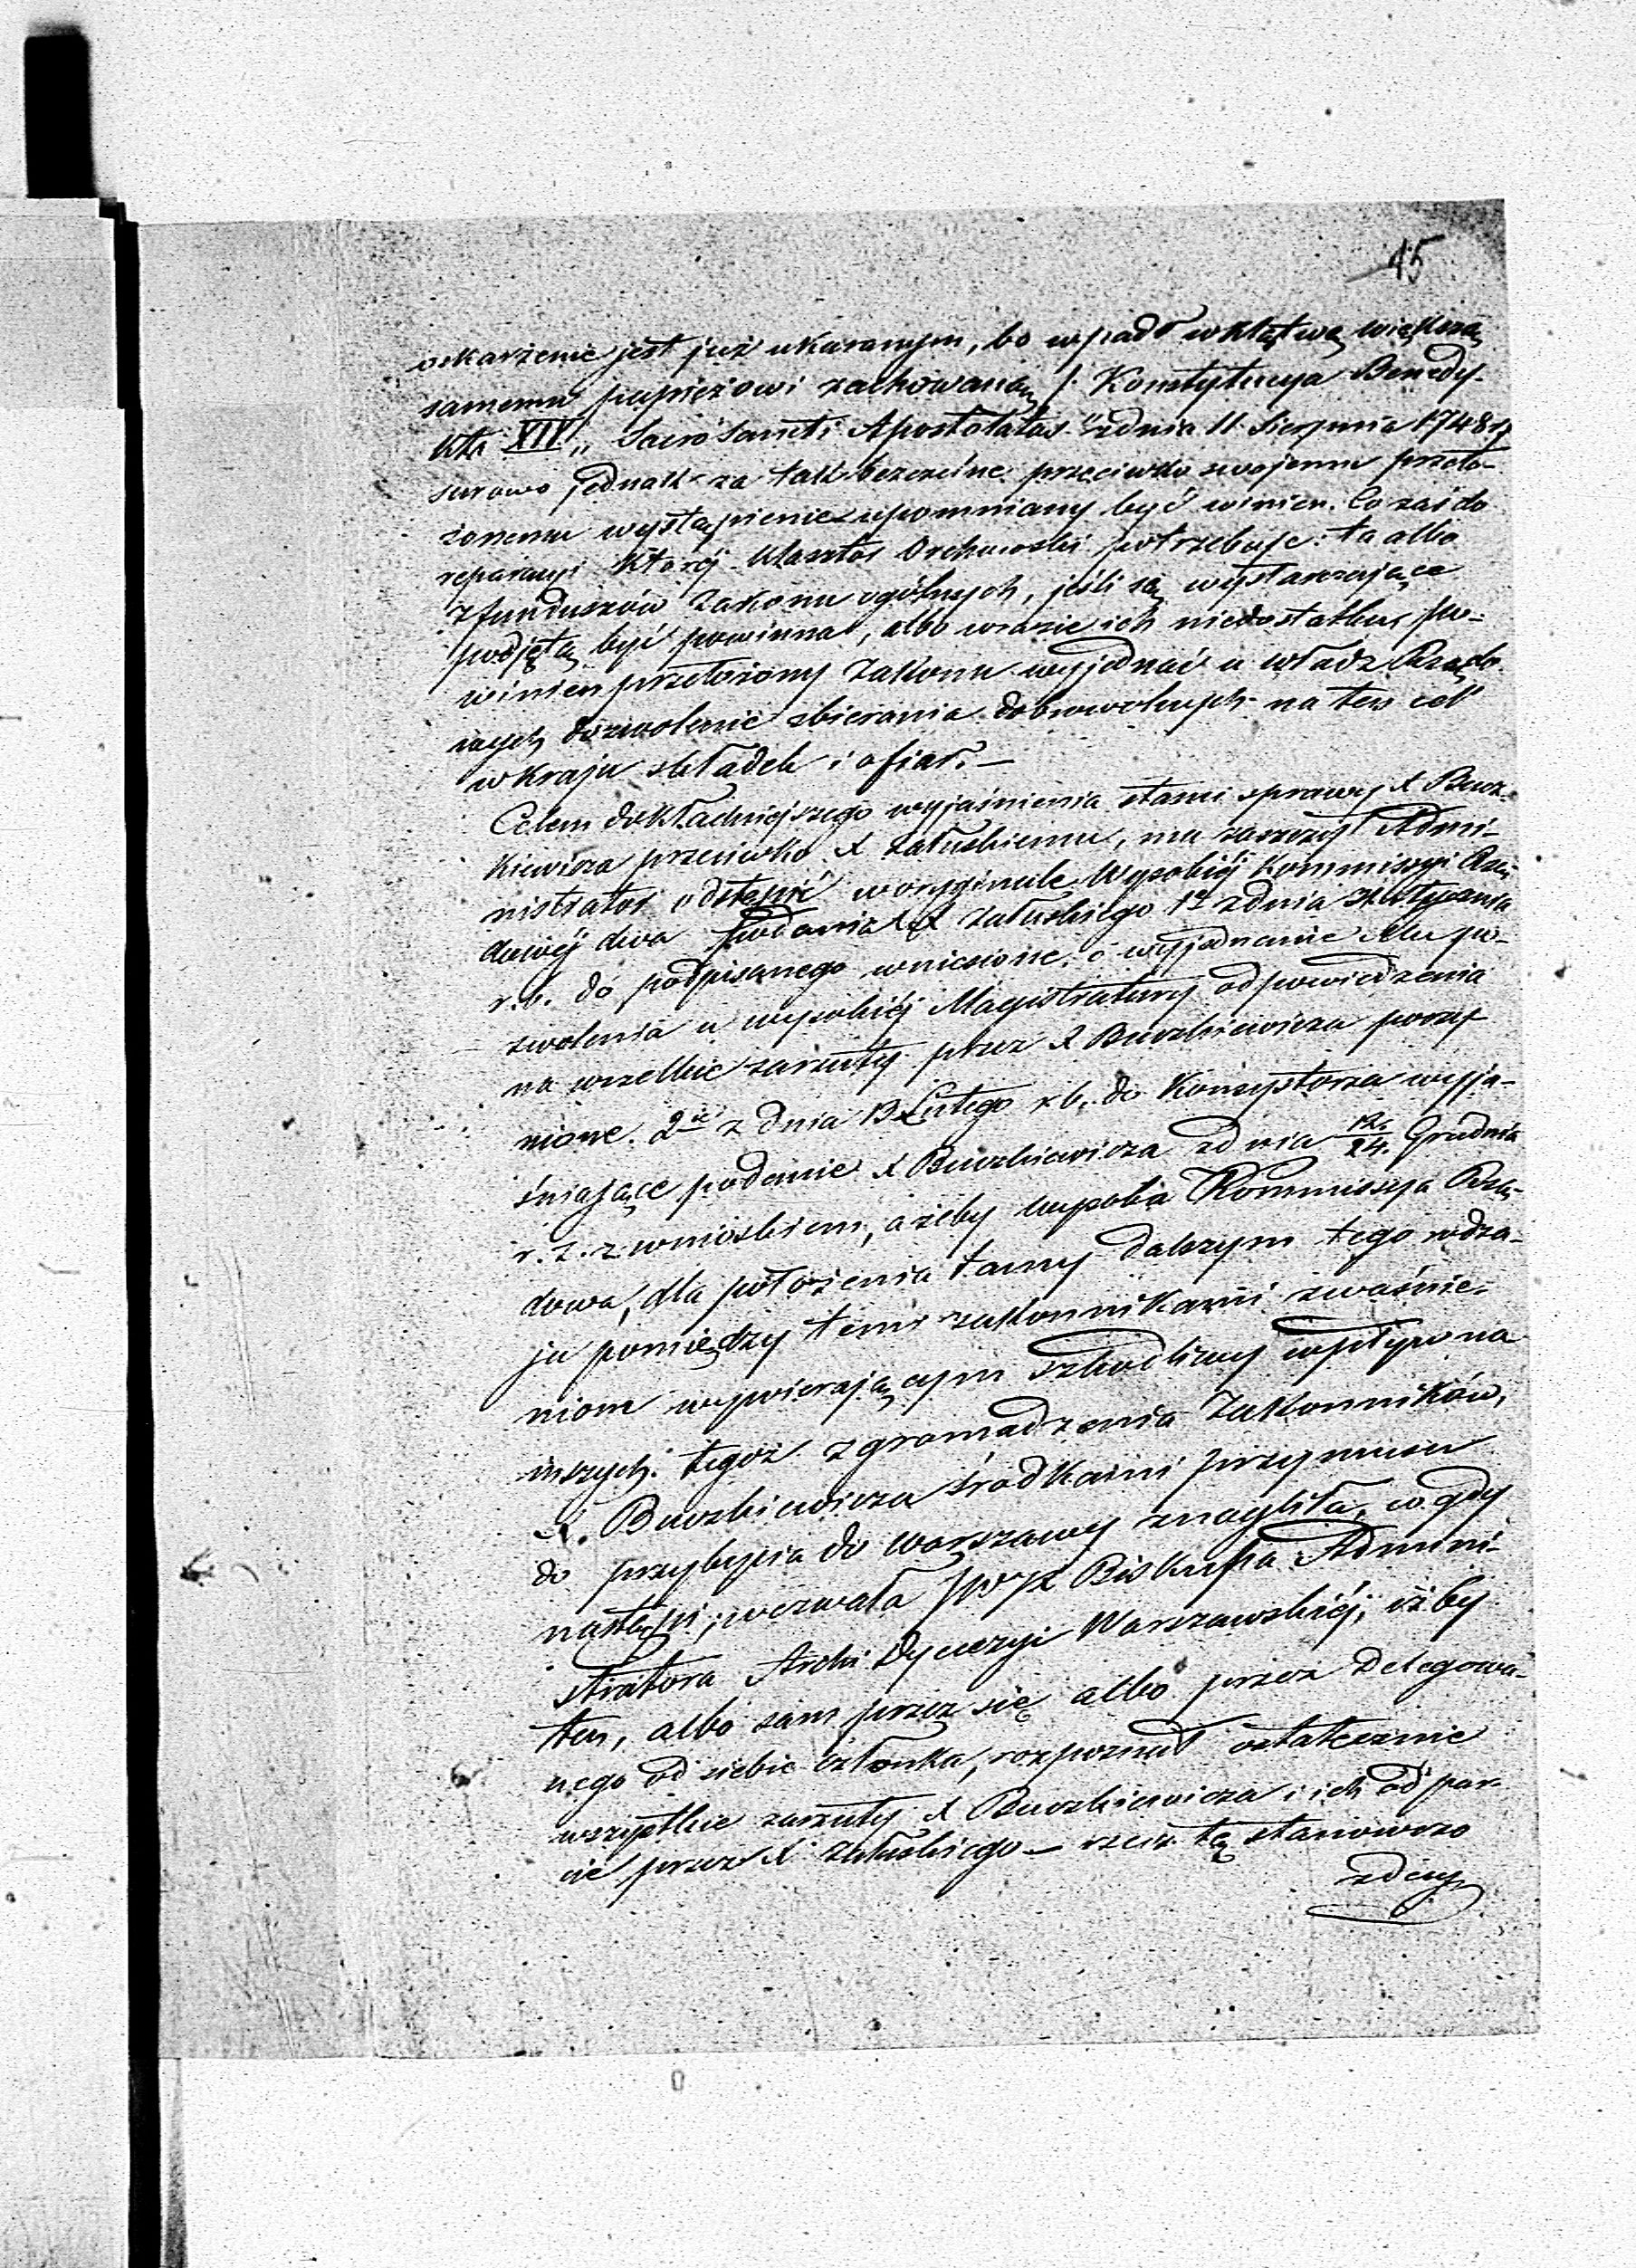 45
oskarżenie jest już ukaranym, bo wpadł w klątwę większą
samemu papieżowi zachowaną /: Konstytucya Benedy-
kta XIV „Sacro Sancti Apostolatus" z dnia 11 Sierpnia 1748 r
surowo jednak za tak bezczelne przeciwko swojemu przeło-
żonemu wystąpienie upomniany być winien. Co zaś do
reparacyi której Klasztor Orchowski potrzebuje: ta albo
z funduszów zakonu ogólnych, jeśli są wystarczające
podjętą być powinna, albo w razie ich niedostatku, po-
winien przełożony zakonu wyjednać u władz Rządo
wych dozwolenie zbierania dobrowolnych na ten cel
w kraju składek i ofiar. —
Celem dokładniejszego wyjaśnienia stanu sprawy X Bucz-
kiewicza przeciwko X Załuskiemu, ma zaszczyt Admi-
nistrator odstąpić w oryginale Wysokiéj Kommissyi Rzą-
dowéj dwa podania X Załuskiego 1º z dnia Stycznia
r. b. do podpisanego wniesione, o wyjednanie Mu po-
zwolenia u wysokiéj Magistratury odpowiedzenia
na wszelkie zarzuty przez X Buczkiewicza poczy
nione. 2º z dnia 13 Lutego r. b. do Konsystorza wyja-
śniające podanie X Buczkiewicza z dnia 12/24 Grudnia
r. z. z wnioskiem, ażeby wysoka Kommissya Rzą-
dowa, dla położenia tamy dalszym tego rodza-
ju pomiędzy temi zakonnikami zwaśnie-
niom wywierającym szkodliwy wpływ na
inszych tegoż zgromadzenia Zakonników,
X. Buczkiewicza środkami przymusu
do przybycia do Warszawy znagliła, co gdy
nastąpi, wezwała przez Biskupa Admini-
stratora Archi Dyecezyi Warszawskiéj, iżby
ten, albo sam przez się albo przez Delegowa-
nego od siebie członka, rozpoznał ostatecznie
wszystkie zarzuty X Buczkiewicza i ich odpar-
cie przez X Załuskiego — rzecz tę stanowczo
zdecy